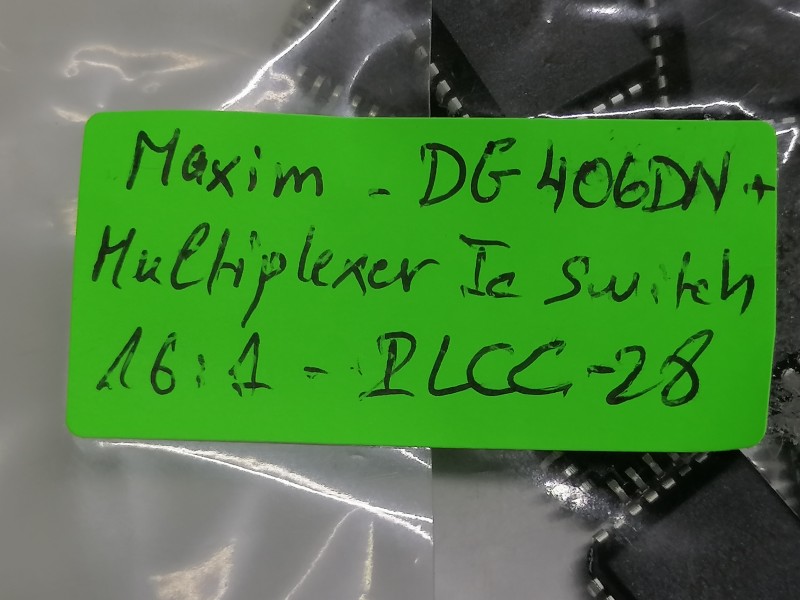 Maxim - DG406DN+
Multiplexer Ic Switch
16:1 - PLCC-28